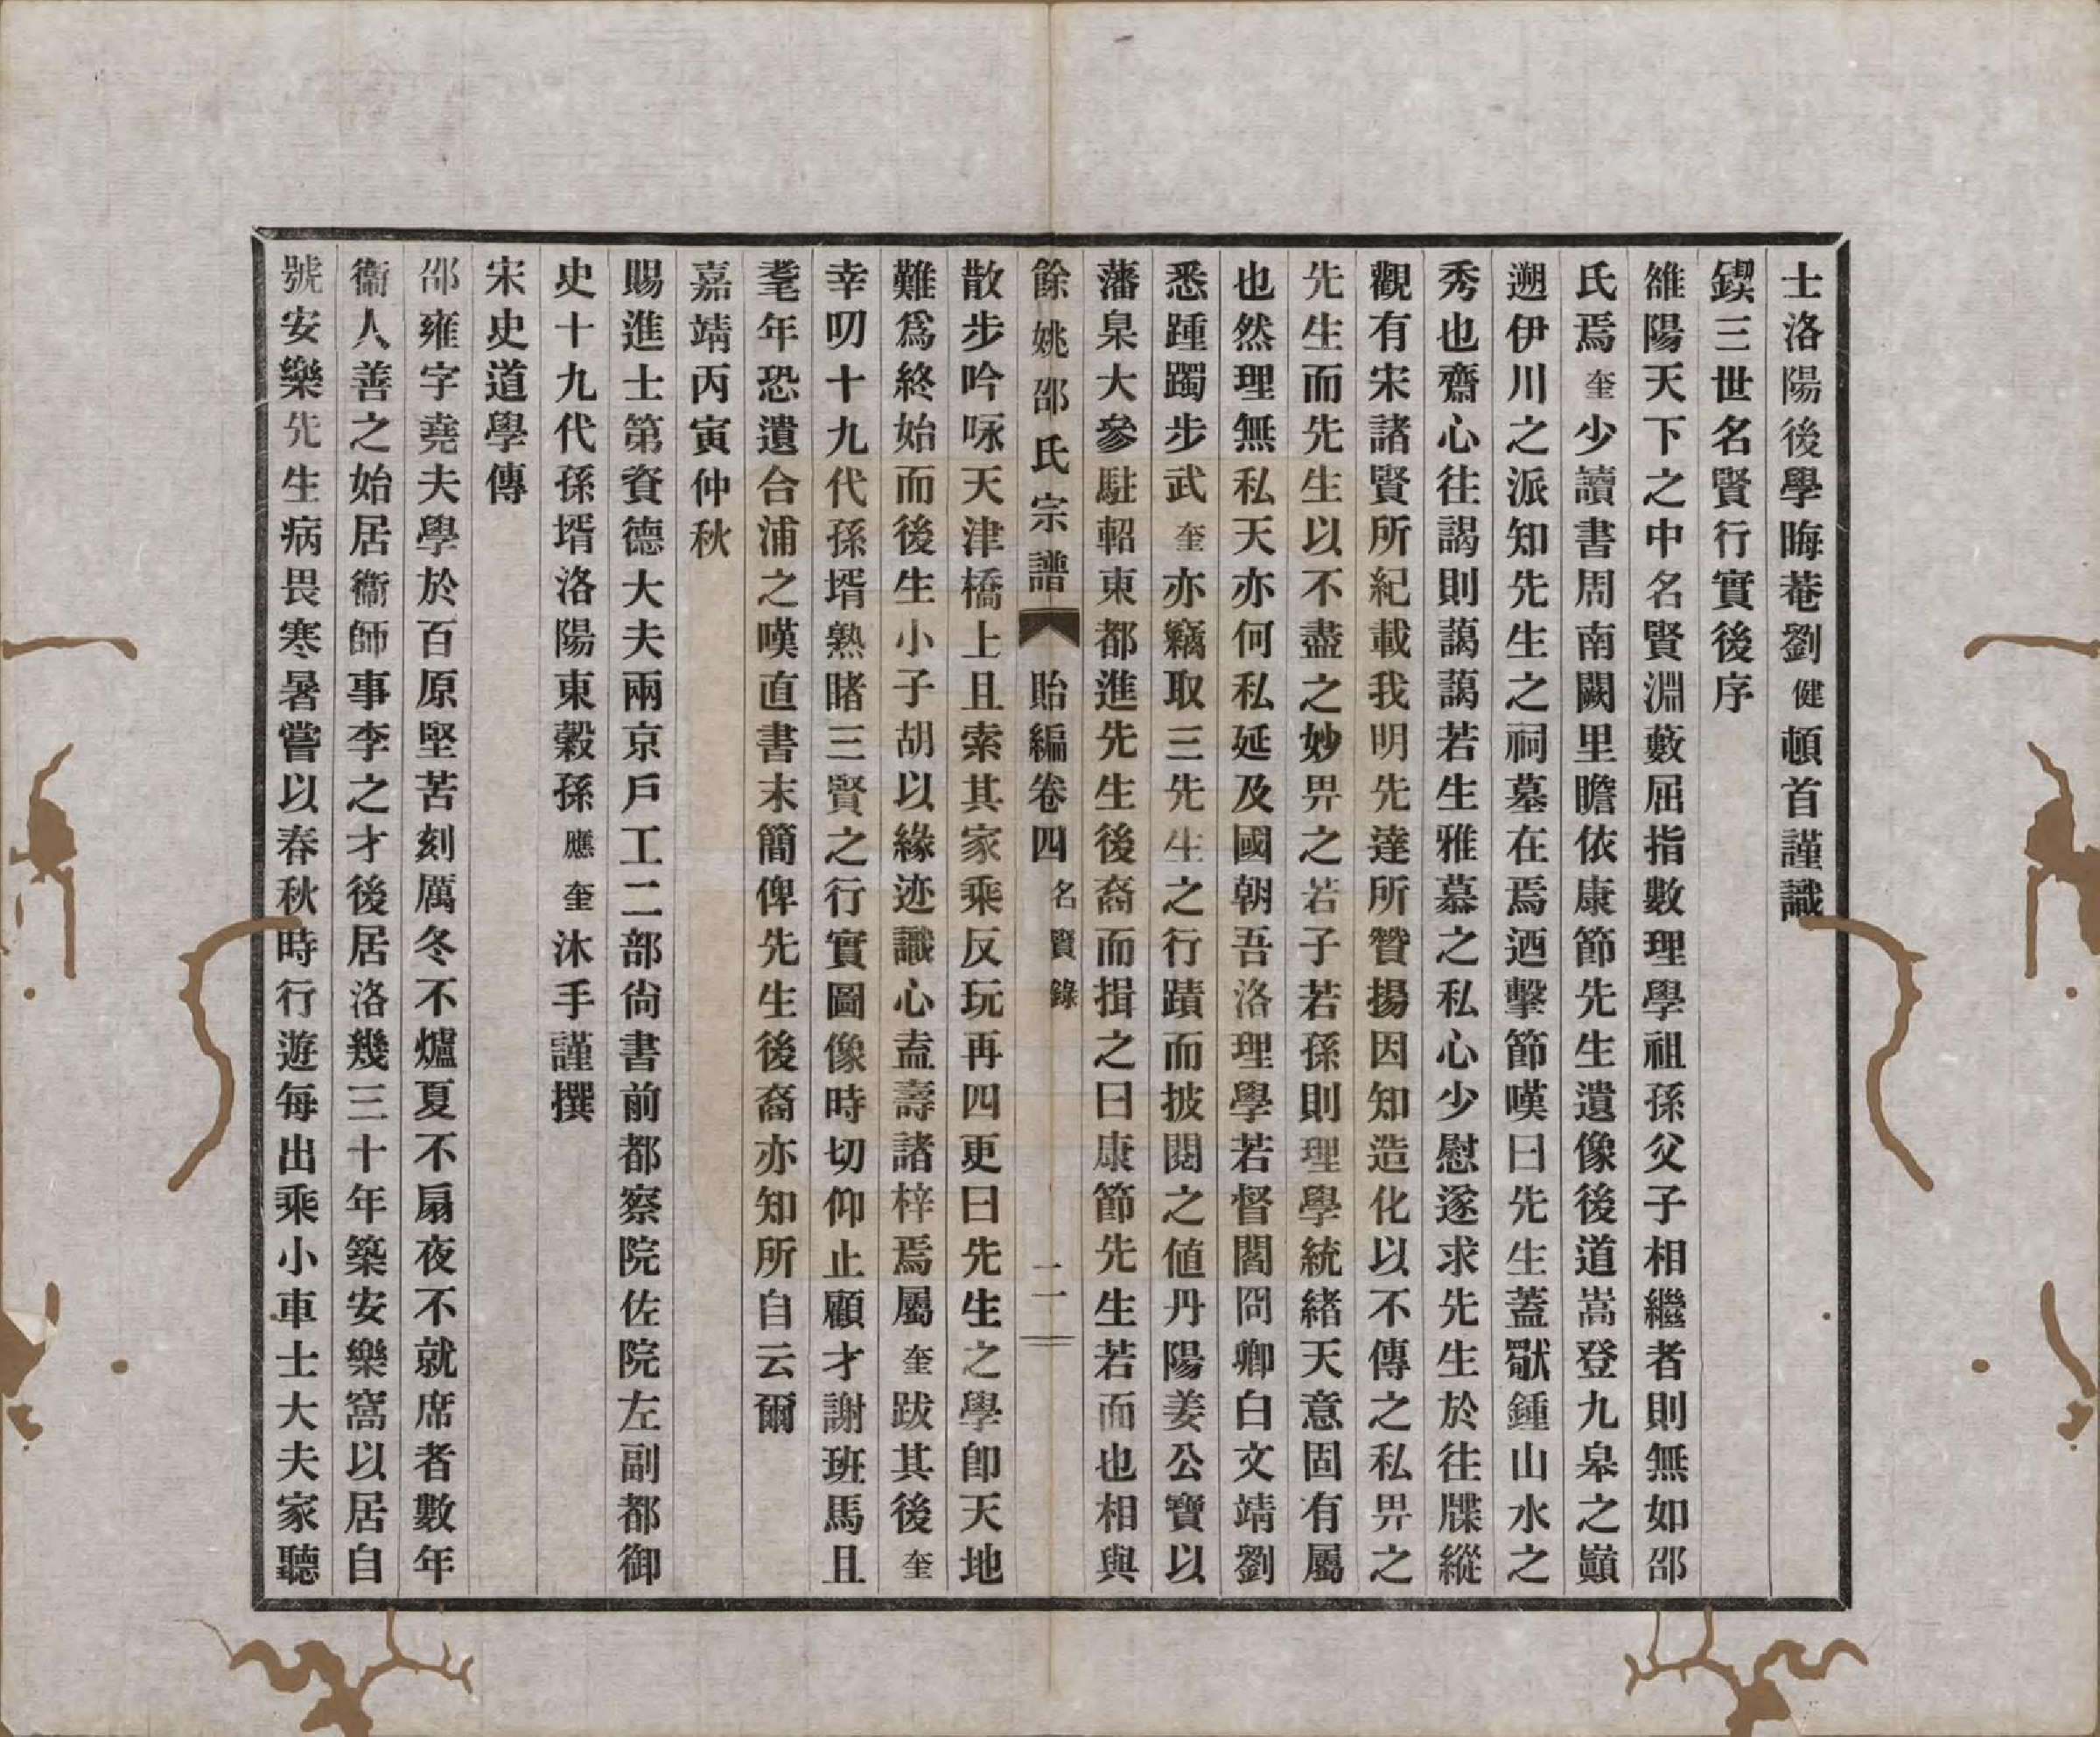 士洛陽後學晦菴劉健頓首謹識
鍥三世名賢行實後序
雒陽天下之中名賢淵藪屈指數理學祖孫父子相繼者則無如邵
氏焉奎少讀書周南闕里瞻依康節先生遺像後道嵩登九皋之巔
遡伊川之派知先生之祠墓在焉迺擊節嘆曰先生蓋歜鍾山水之
秀也齋心往謁則藹藹若生雅慕之私心少慰遂求先生於往牒縱
觀有宋諸賢所紀載我明先達所贊揚因知造化以不傳之私畀之
先生而先生以不盡之妙畀之若子若孫則理學統緒天意固有屬
也然理無私天亦何私延及國朝吾洛理學若督閻冏卿白文靖劉
悉踵躅步武奎亦竊取三先生之行蹟而披閱之値丹陽姜公寶以
藩臬大參駐軺東都進先生後裔而揖之曰康節先生若面也相與
餘姚邵氏宗譜 貽編卷四 名賢錄 二
散步吟咏天津橋上且索其家乘反玩再四更曰先生之學卽天地
難爲終始而後生小子胡以緣迹識心盍壽諸梓焉屬奎跋其後奎
幸叨十九代孫壻熟睹三賢之行實圖像時切仰止顧才謝班馬且
耄年恐遺合浦之嘆直書末簡俾先生後裔亦知所自云爾
嘉靖丙寅仲秋
賜進士第資德大夫兩京戶工二部尙書前都察院佐院左副都御
史十九代孫壻洛陽東穀孫應奎沐手謹撰
宋史道學傳
邵雍字堯夫學於百原堅苦刻厲冬不爐夏不扇夜不就席者數年
衞人善之始居衞師事李之才後居洛幾三十年築安樂窩以居自
號安樂先生病畏寒暑嘗以春秋時行遊每出乘小車士大夫家聽